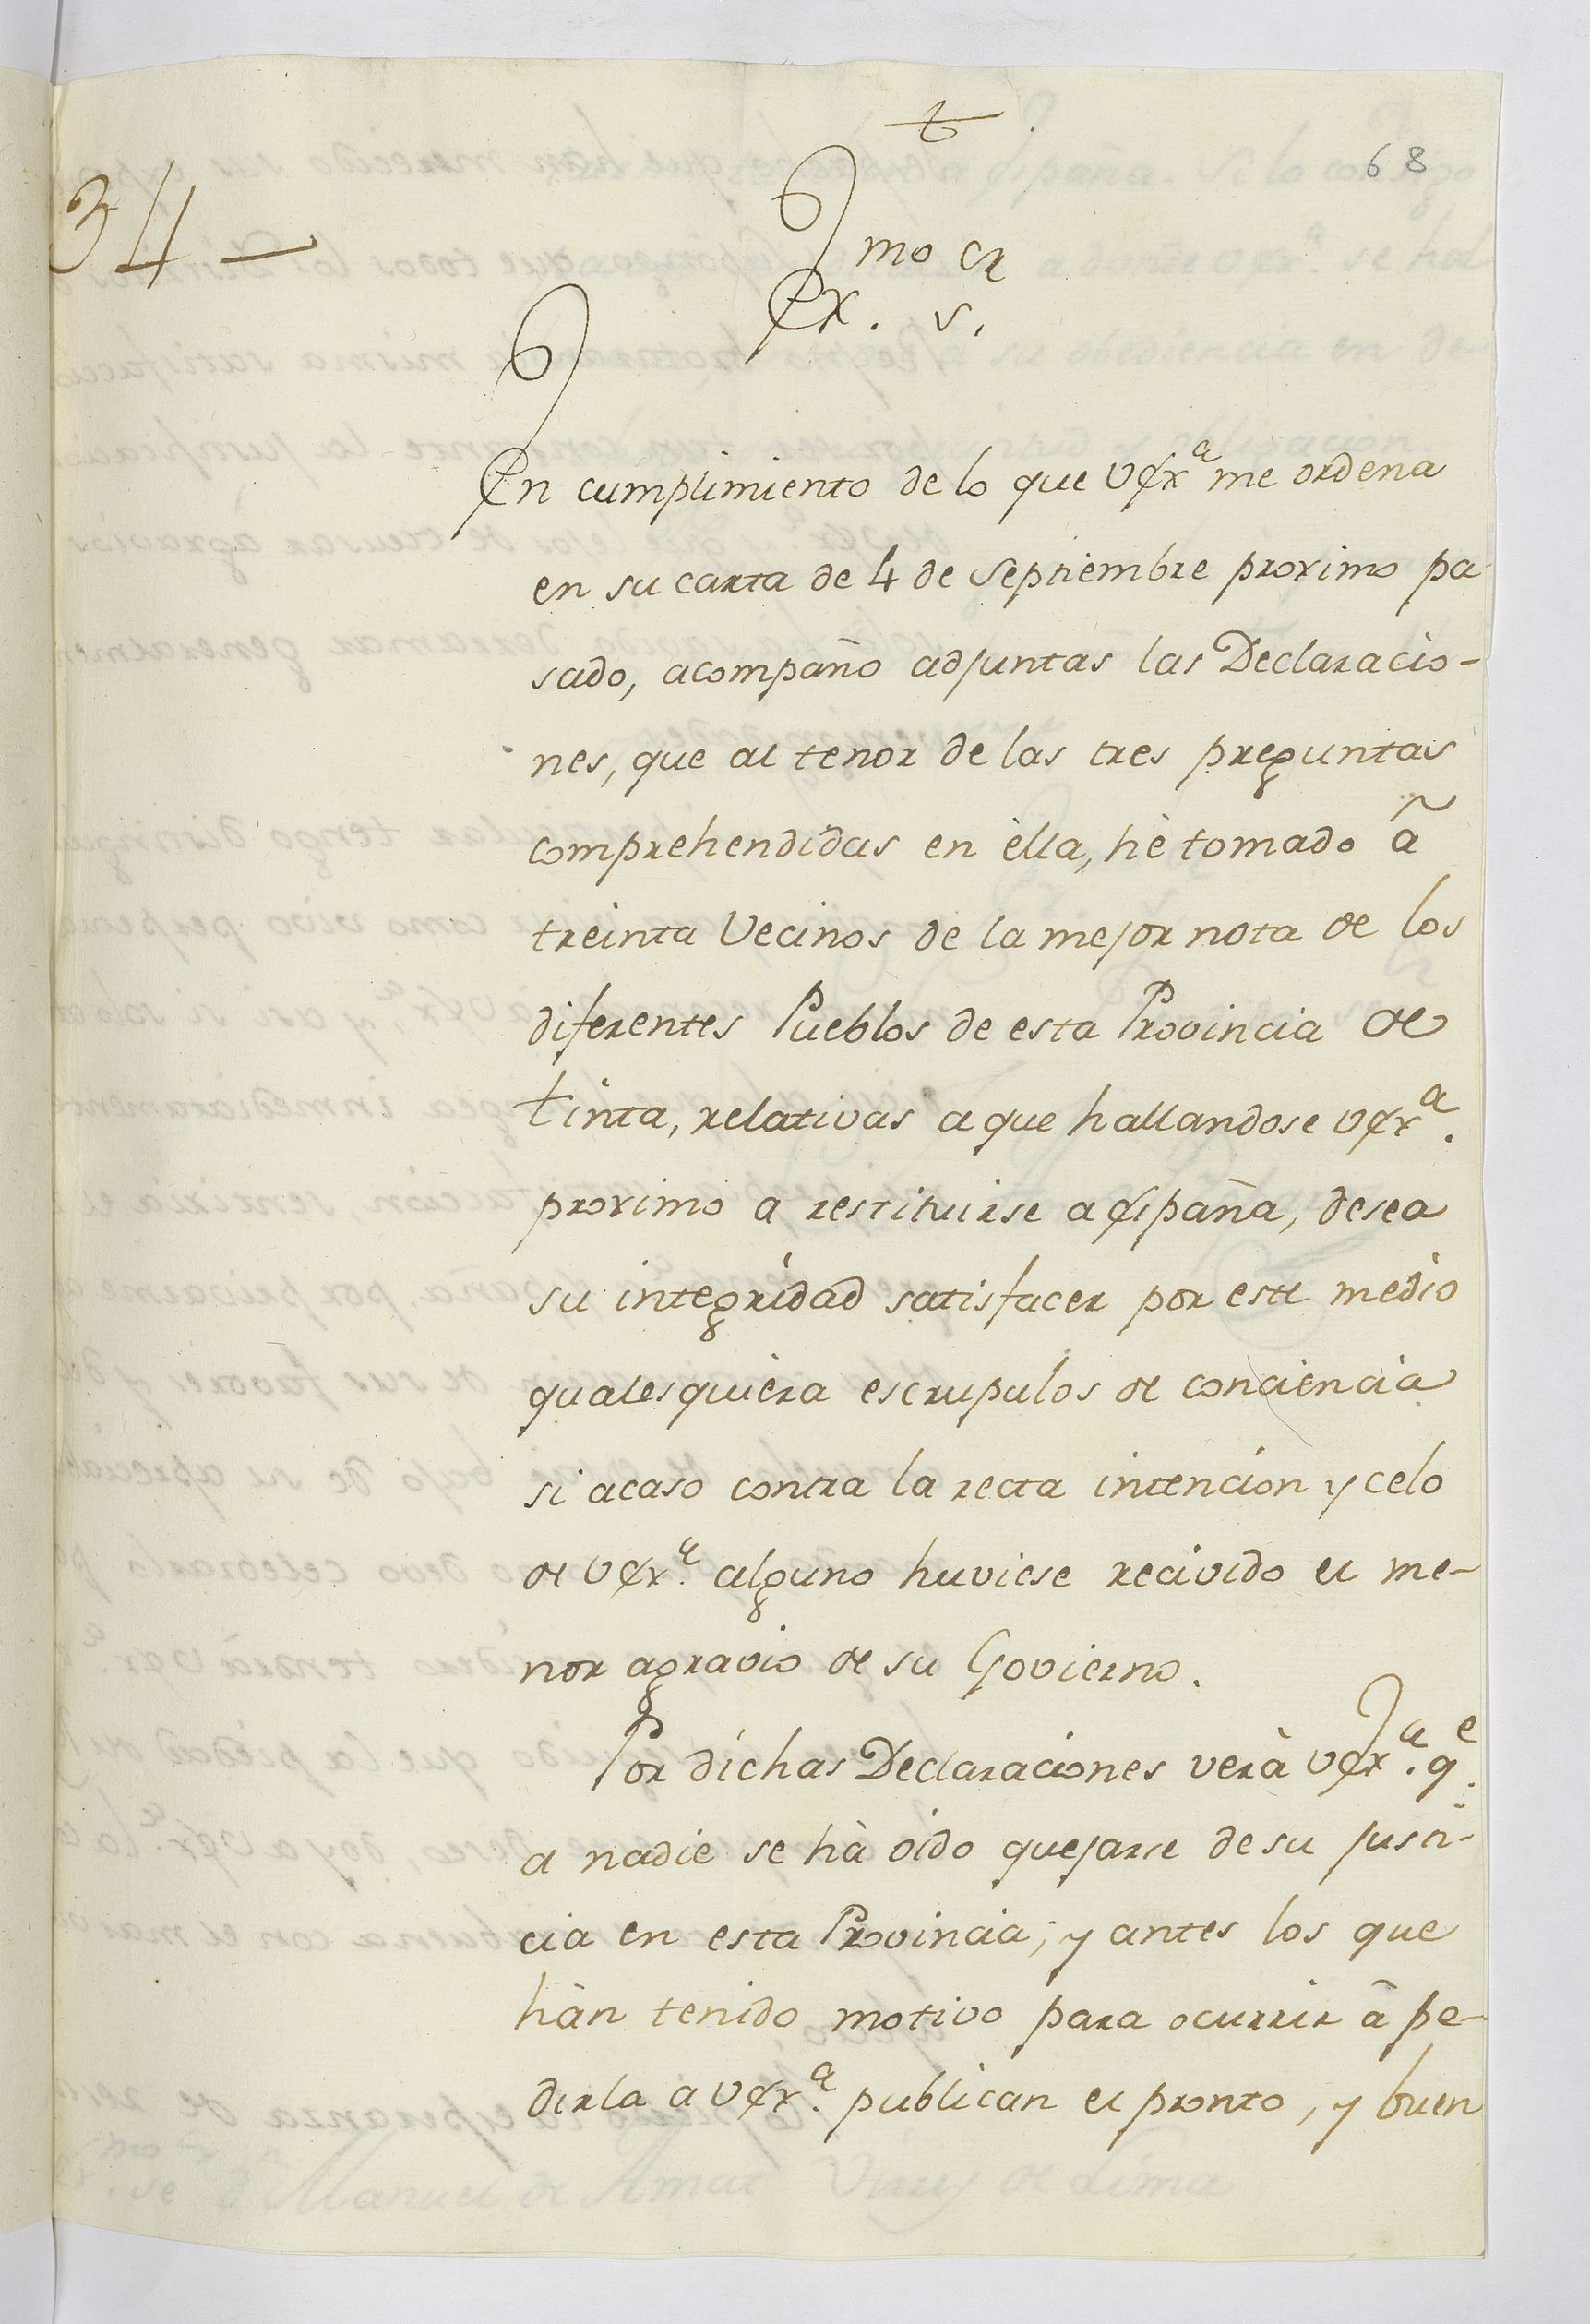 68
34 —
Exmo. Sr.
En cumplimiento de lo que VExa me ordena
en su carta de 4 de Septiembre proximo pa-
sado, acompaño adjuntas las Declaracio-
nes, que al tenor de las tres preguntas
comprehendidas en èlla, hè tomado ã
treinta Vecinos de la mejor nota de los
diferentes Pueblos de esta Provincia de
tinta, relativas a que hallandose VExa.
proximo a restituirse a España, desea
su integridad satisfacer por este medio
qualesquiera escrupulos de conciencia
si acaso contra la recta intencion y celo
de VExa. alguno huviese recivido el me-
nor agravio de su Govierno.
Por dichas Declaraciones verà VExa. qe.
a nadie se hà oido quejarse de su justi-
cia en esta Provincia; y antes los que
hàn tenido motivo para ocurrir â pe-
dirla a VExa. publican el pronto, y buen